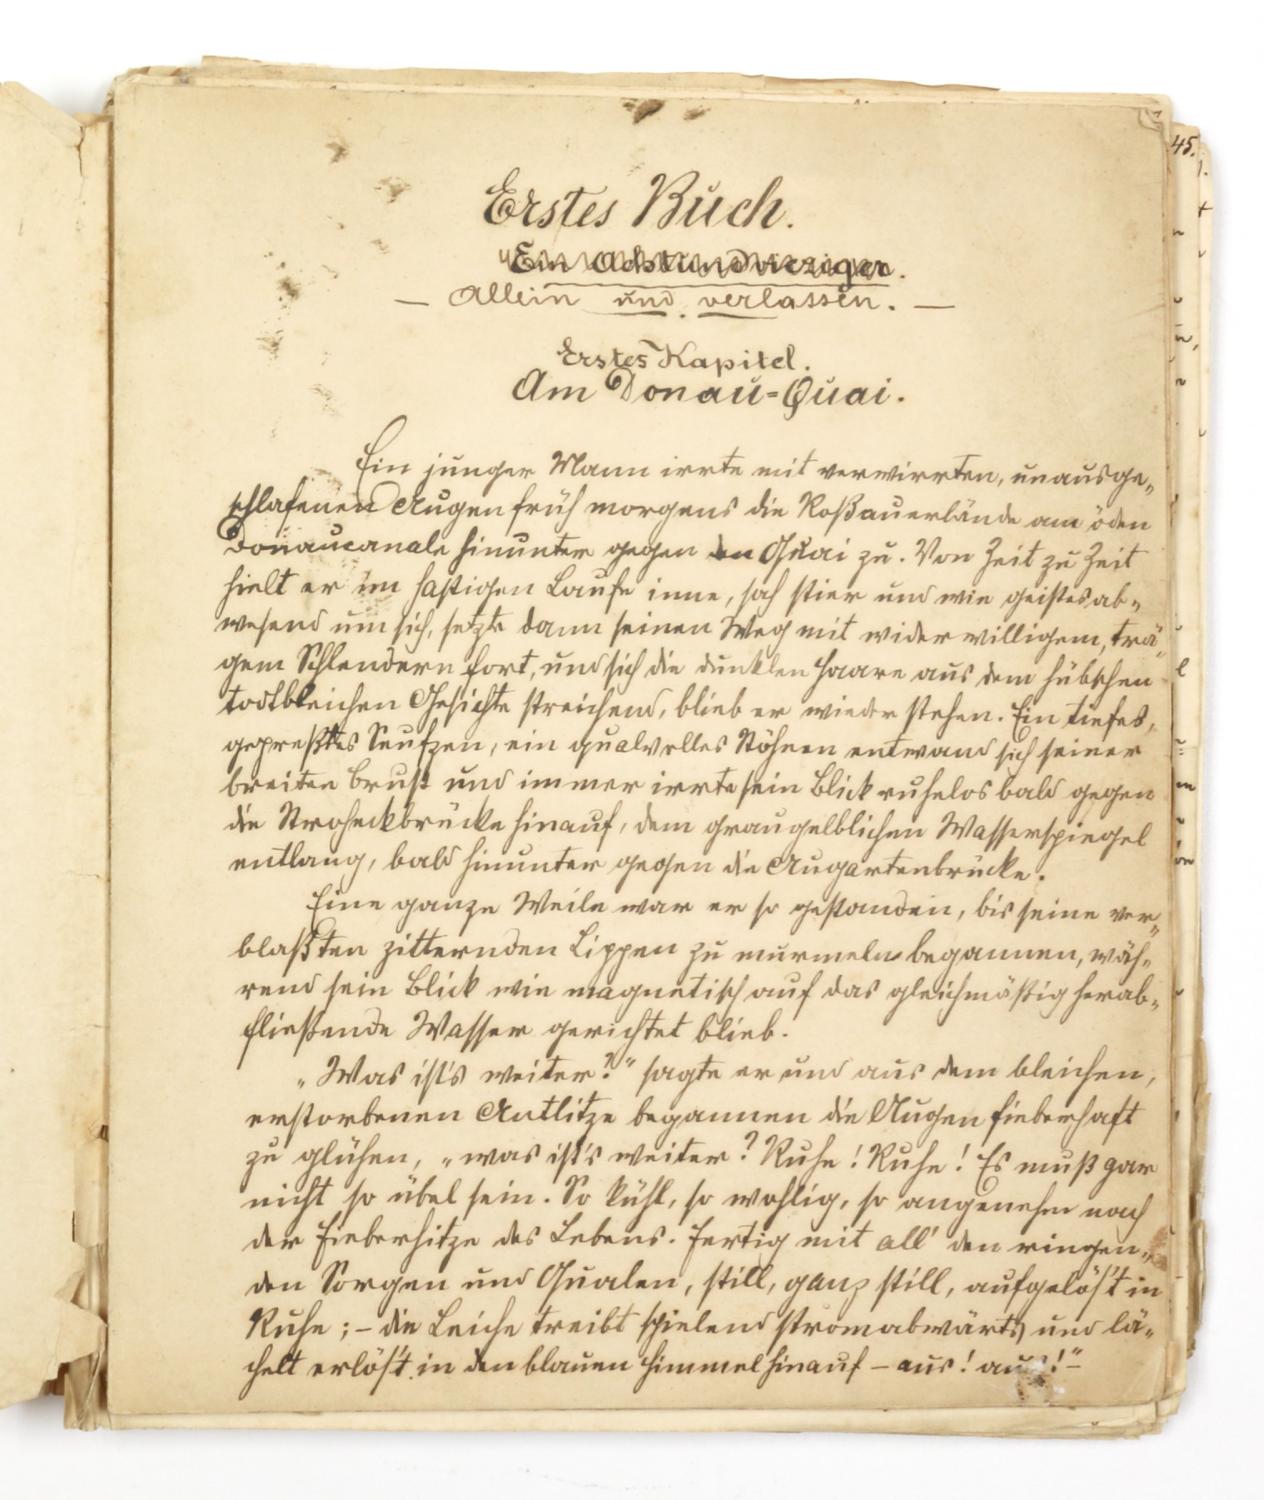 Erstes Buch.
Ein Achtundvierziger.
— Allein und verlassen. —
Erstes Kapitel.
Am Donau-Quai.
Ein junger Mann irrte mit verwirrten, unausge-
schlafenen Augen früh morgens die Roßauerlände am öden
Donaucanale hinunter gegen den Quai zu. Von Zeit zu Zeit
hielt er im hastigen Laufe inne, sah stier und wie geistesab-
wesend um sich, setzte dann seinen Weg mit widerwilligem, trä-
gem Schlendern fort, und sich die dunklen Haare aus dem hübschen
todtbleichen Gesichte streichend, blieb er wieder stehen. Ein tiefes,
gepreßtes Seufzen, ein qualvolles Stöhnen entwand sich seiner
breiten Brust und immer irrte sein Blick ruhelos bald gegen
die Stroheckbrücke hinauf, dem graugelblichen Wasserspiegel
entlang, bald hinunter gegen die Augartenbrücke.
Eine ganze Weile war er so gestanden, bis seine ver-
blaßten zitternden Lippen zu murmeln begannen, wäh-
rend sein Blick wie magnetisch auf das gleichmäßig herab-
fließende Wasser gerichtet blieb.
„Was ist's weiter?" sagte er und aus dem bleichen,
erstorbenen Antlitze begannen die Augen fieberhaft
zu glühen, „was ist's weiter? Ruhe! Ruhe! Es muß gar
nicht so übel sein. So kühl, so wohlig, so angenehm nach
der Fieberhitze des Lebens. Fertig mit all' den ringen-
den Sorgen und Qualen, still, ganz still, aufgelös't in
Ruhe; – die Leiche treibt spielend stromabwärts und lä-
chelt erlös't in den blauen Himmel hinauf – aus! aus!"–
45.